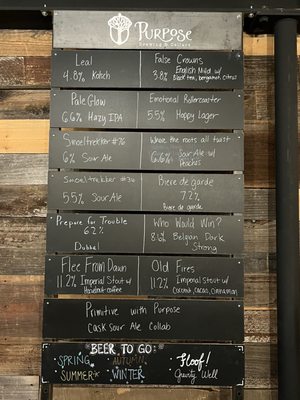 PURPOSE
Brewing & Cellars
Leal
4.8% Kolsch
False Crowns
3.8% English Mild w/
Black tea, bergamot, citrus
Pale Glow
6.6% Hazy IPA
Emotional Rollercoaster
5.5% Hoppy Lager
Smoeltrekker #76
6% Sour Ale
Where the roots all twist
6.6% Sour Ale w/
Peaches
Smoeltrekker #36
5.5% Sour Ale
Biere de garde
7.2%
Biere de garde
Prepare for Trouble
6.2%
Dubbel
Who Would Win?
Belgian Dark
Strong
Flee From Dawn
11.2% Imperial Stout w/
Hazelnut-coffee
Old Fires
11.2% Imperial Stout w/
Coconut, cacao, cinnamon
Primitive with Purpose
Cask Sour Ale Collab
*BEER TO GO:*
SPRING AUTUMN
SUMMER WINTER
Floof!
Gravity Well